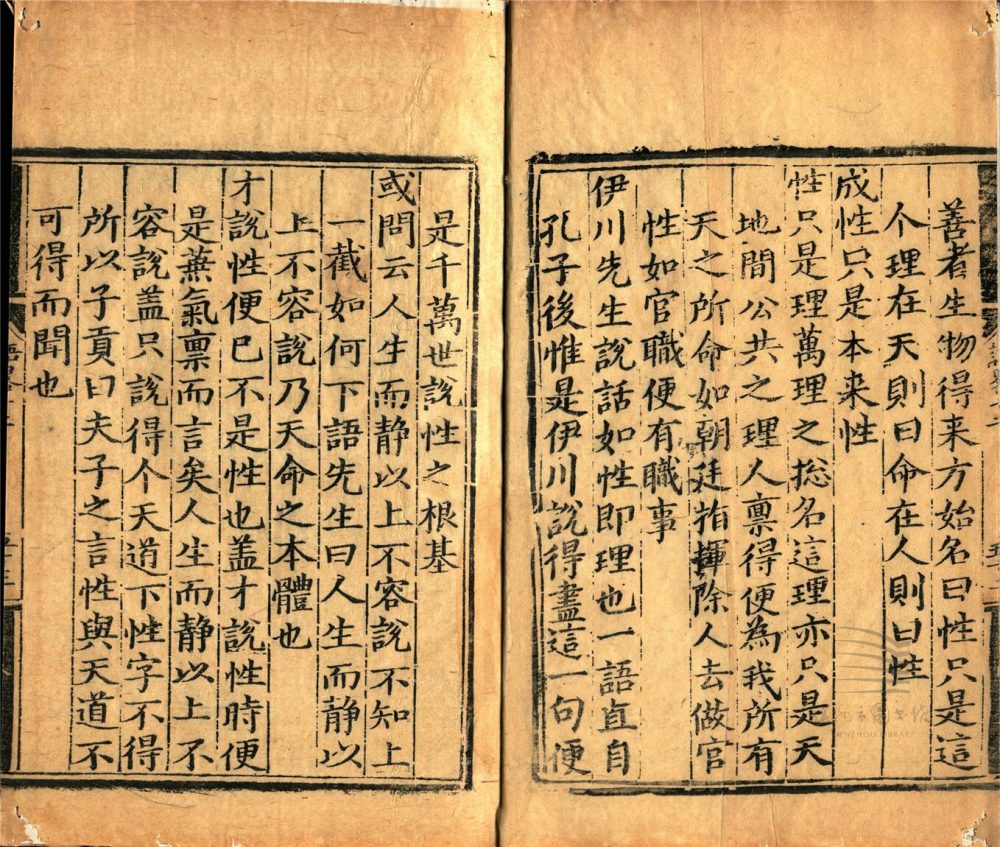 善者生物得来方始名曰性只是這
个理在天則曰命在人則曰性
成性只是本来性
性只是理萬理之捴名這理亦只是天
地間公共之理人禀得便為我所有
天之所命如朝廷指揮除人去做官
性如官職便有職事
伊川先生說話如性即理也一語直自
孔子後惟是伊川說得盡這一句便
是千萬世說性之根基
或問云人生而静以上不容說不知上
一截如何下語先生曰人生而静以
上不容說乃天命之本體也
才說性便已不是性也盖才說性時便
是兼氣禀而言矣人生而静以上不
容說盖只說得个天道下性字不得
所以子貢曰夫子之言性與天道不
可得而聞也